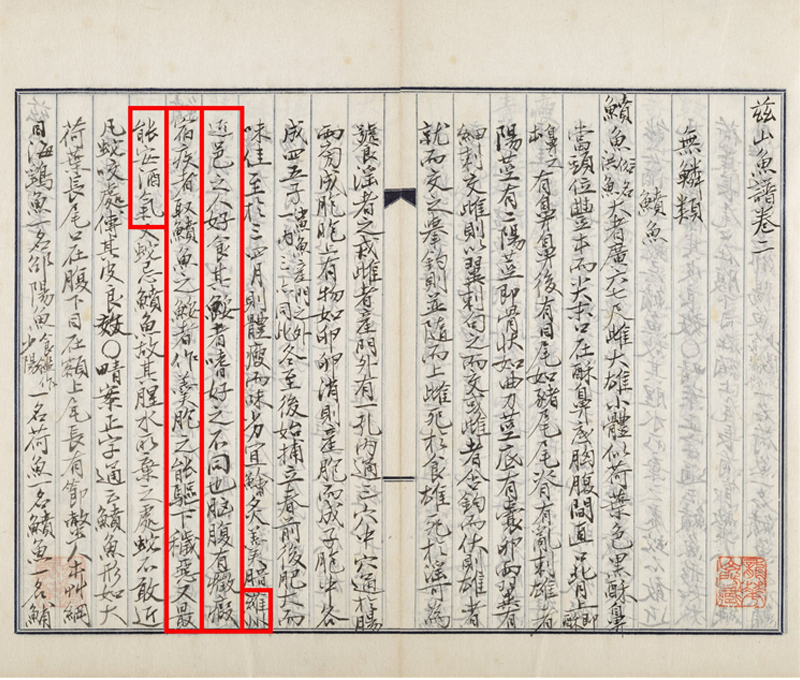 玆山魚譜卷二
無鱗類
鱝魚
鱝魚俗名洪魚大者廣六七尺雌大雄小體似荷葉色黑酥鼻
當頭位豊本而尖末口在酥鼻底胸腹間直口背上卽酥
鼻之有鼻鼻後有目尾如豬尾尾脊有亂刺雄者
陽莖有二陽莖卽骨狀如曲刀莖底有囊卵兩翼有
細刺交雌則以翼刺句之而交或雌者含鉤而伏則雄者
就而交之擧鉤則並隨而上雌死於食雄死於淫可爲
饕淫者之戒雌者產門外有一孔內通三穴中穴通於膓
兩旁成胞胞上有物如卵卵消則產胞而成子胞中各
成四五子鯊魚產門之外一內三亦同此冬至後始捕立春前後肥大而
味佳至於三四月則體瘦而味劣宜鱠炙羹腊羅州
近邑之人好食其鮾者嗜好之不同也胸腹有癥瘕
宿疾者取鱝魚之鮾者作羹飽之能驅下穢惡又最
能安酒氣又蛇忌鱝魚故其腥水所棄之處蛇不敢近
凡蛇咬處傅其皮良效○晴案正字通云鱝魚形如大
荷葉長尾口在腹下目在額上尾長有節螫人本艸綱
目海鷂魚一名邵陽魚食鑑作少陽一名荷魚一名鱝魚一名鯆